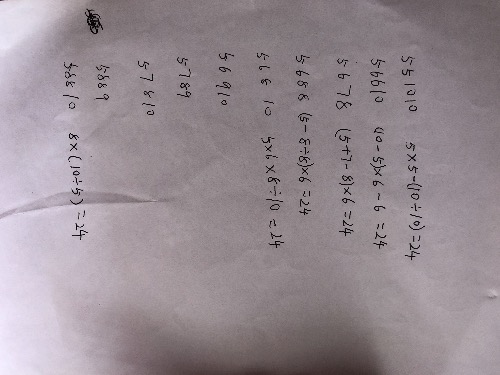 5 5 10 10 5×5-(10÷10)=24
5 6 6 10 (10-5)×6-6=24
5 6 7 8 (5+7-8)×6=24
5 6 8 8 (5-8÷8)×6=24
5 6 8 10 5×6×8÷10=24
5 6 9 10
5 7 8 9
5 7 8 10
5 8 8 9
5 8 8 10 8×(10÷5)=24